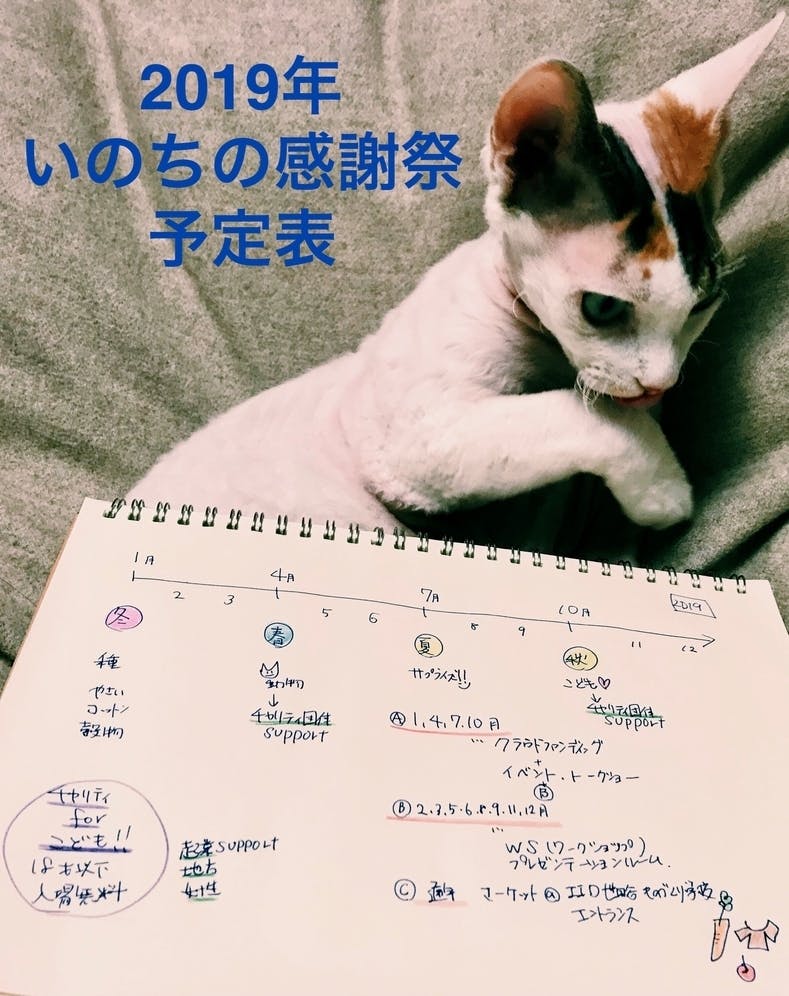 2019年
いのちの感謝祭
予定表
1月
4月
7月
10月
2019
2
3
5
6
8
9
11
12
冬
春
夏
秋
種
やさい
コットン
穀物
動物
↓
チャリティ団体
support
サプライズ!!
こども♡
↓
チャリティ団体
support
Ⓐ 1,4,7,10月
… クラウドファンディング
+
イベント・トークショー
Ⓑ
Ⓑ 2.3.5.6.8.9.11.12月
…
WS(ワークショップ)
プレゼンテーションルーム.
Ⓒ 通年 マーケット@ IID 世田谷ものづくり学校
エントランス
チャリティ
for
こども!!
18才以下
入場無料
起業support
地方
女性